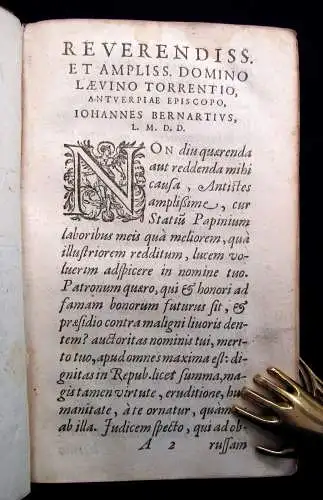 REVERENDISS.
ET AMPLISS. DOMINO
LÆVINO TORRENTIO,
ANTVERPIAE EPISCOPO,
IOHANNES BERNARTIVS,
L. M. D. D.
NON diu quærenda
aut reddenda mihi
causa, Antistes
amplißime, cur
Statiũ Papinium
laboribus meis quà meliorem, quà
illustriorem redditum, lucem vo-
luerim adspicere in nomine tuo.
Patronum quæro, qui & honori ad
famam bonorum futurus sit, &
præsidio contra maligni liuoris den-
tem? auctoritas nominis tui, meri-
to tuo, apud omnes maxima est: di-
gnitas in Repub. licet summa, ma-
gis tamen virtute, eruditione, hu-
manitate, à te ornatur, quam
ab illa. Iudicem specto, qui ad ob-
A 2 russam